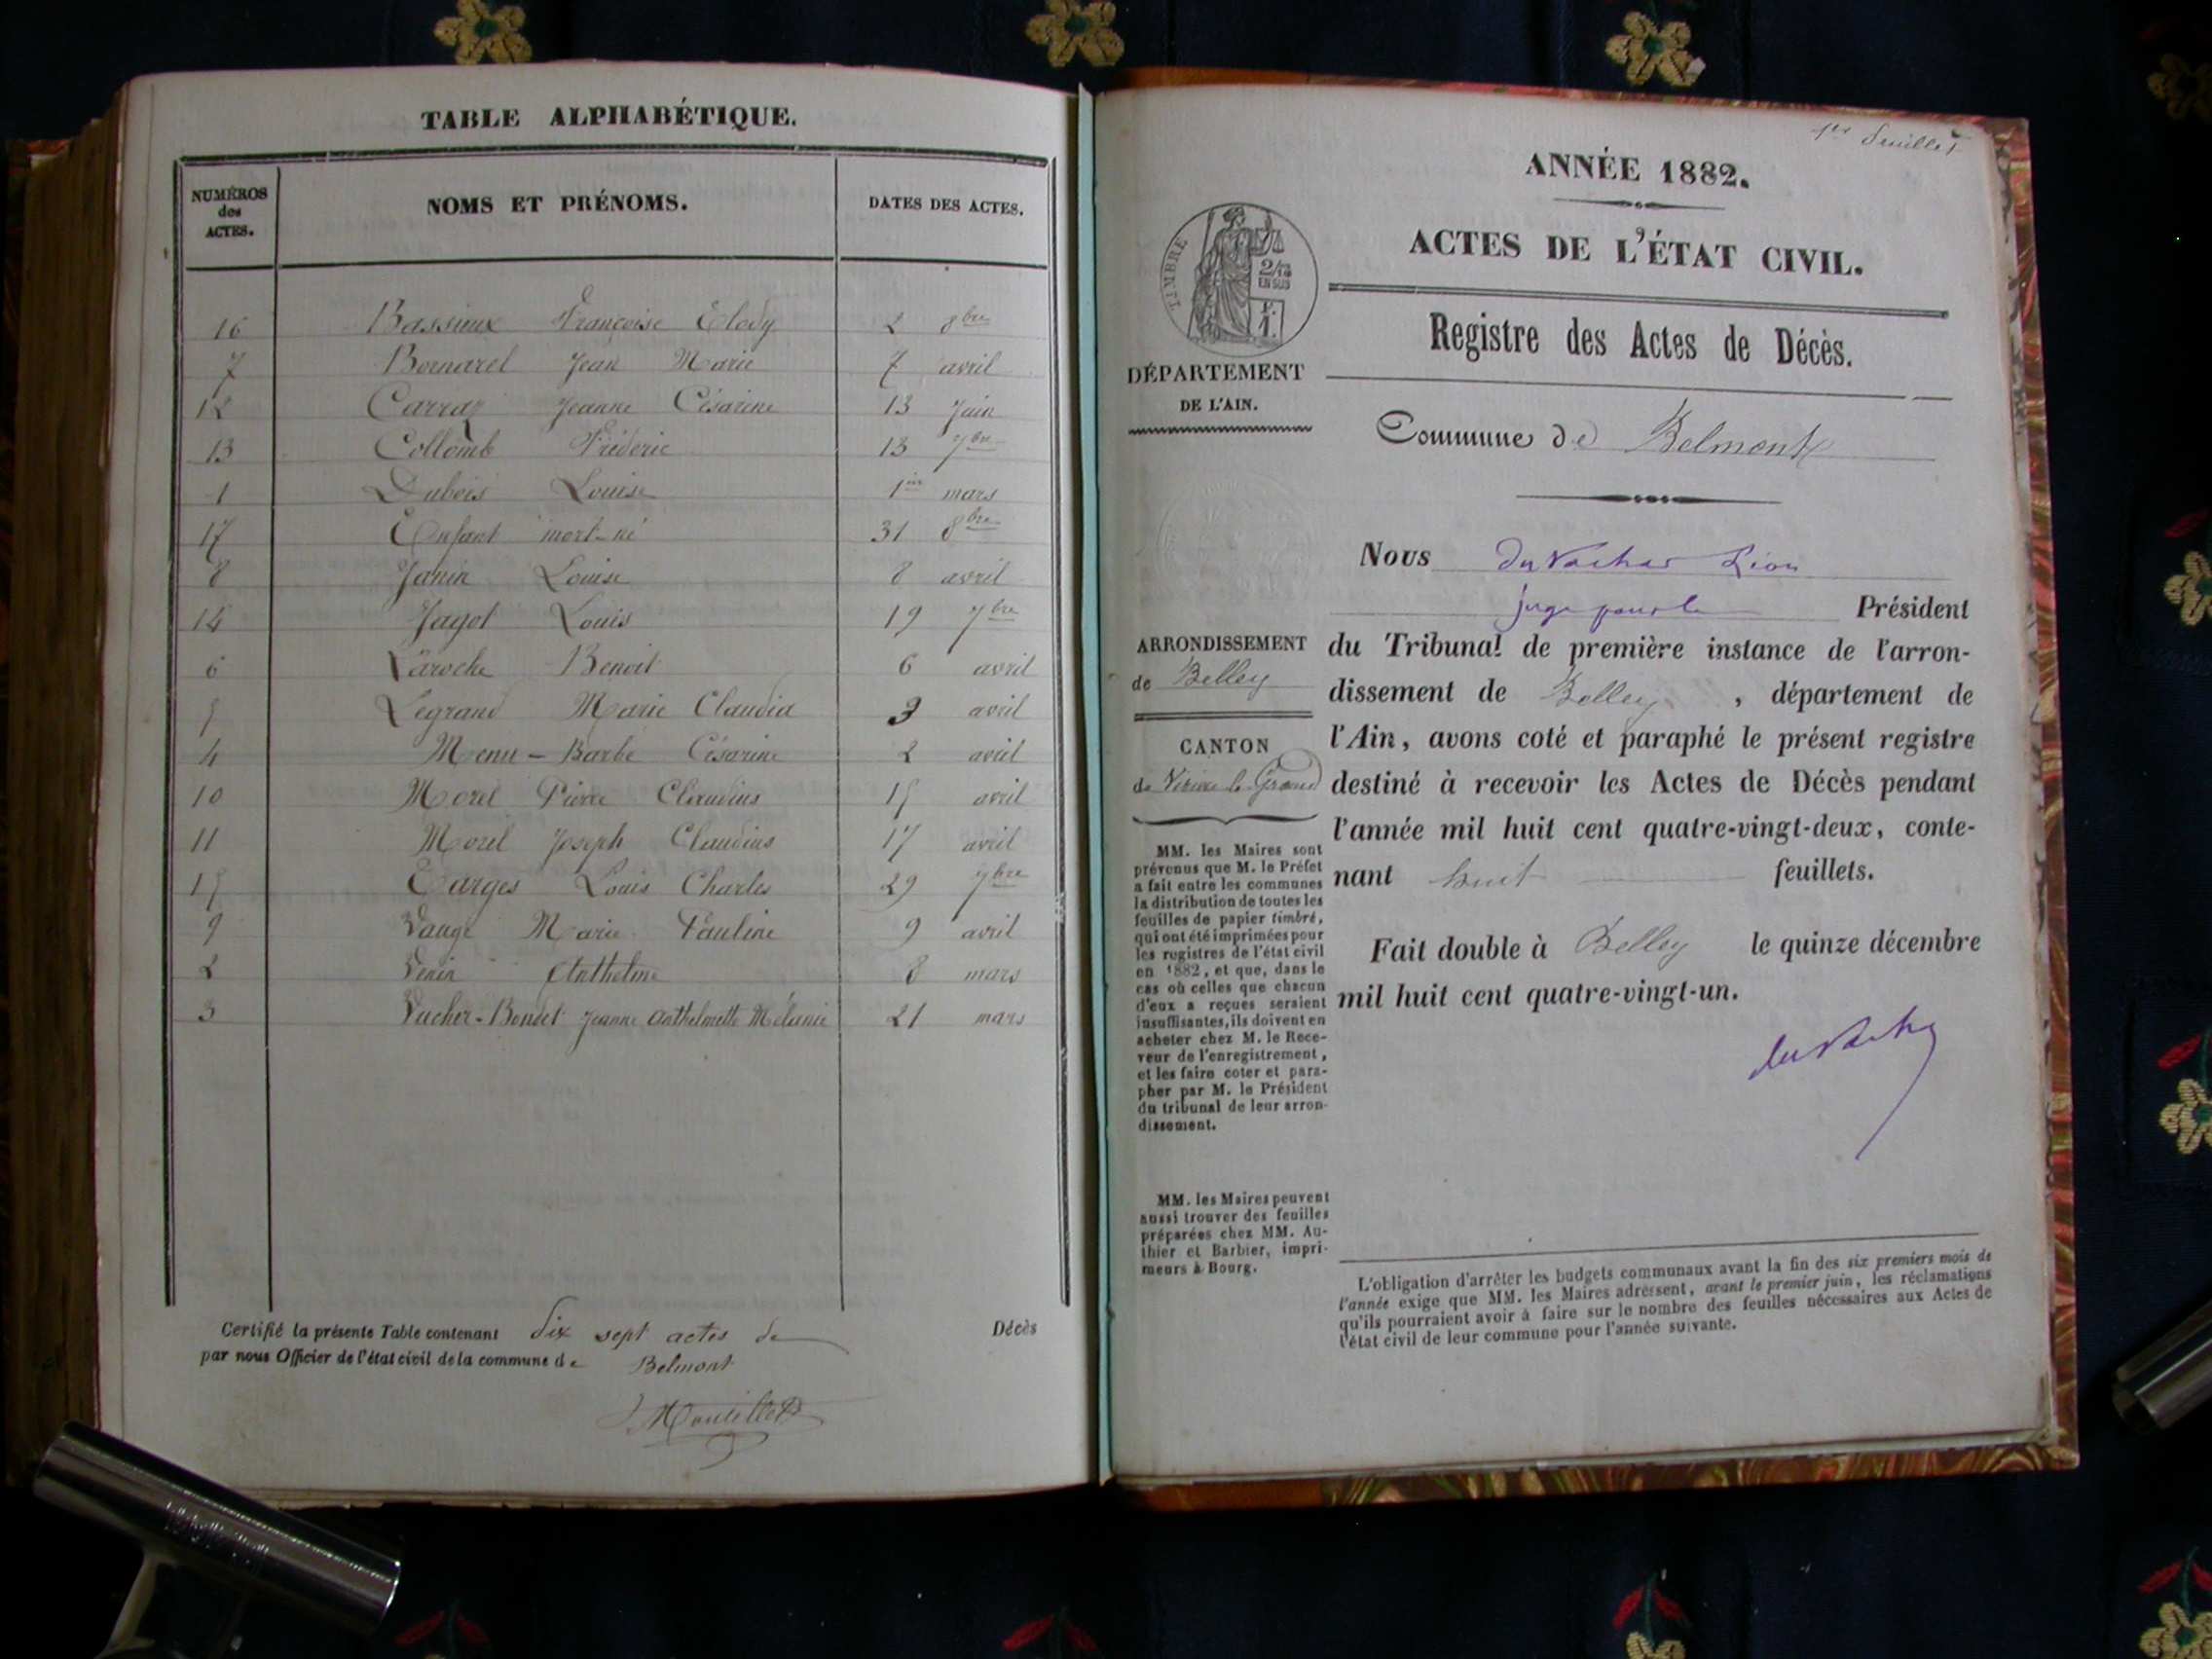 TABLE ALPHABÉTIQUE.
NUMÉROS
des
ACTES.
NOMS ET PRÉNOMS.
DATES DES ACTES.
16 Bassieux Françoise Elody 2 8bre
7 Bornarel Jean Marie 7 avril
12 Carraz Jeanne Césarine 13 Juin
13 Collomb Fréderic 13 7bre
1 Dubois Louise 1er mars
17 Enfant mort-né 31 8bre
8 Janin Louise 8 avril
14 Jagot Louis 19 7bre
6 Laroche Benoit 6 avril
5 Legrand Marie Claudia 3 avril
4 Menu-Barbe Césarine 2 avril
10 Morel Pierre Claudius 15 avril
11 Morel Joseph Claudius 17 avril
15 Targes Louis Charles 29 7bre
9 Vauge Marie Pauline 9 avril
2 Venin Anthelme 8 mars
3 Vucher-Bondet Jeanne Anthelmette Mélanie 21 mars
Certifié la présente Table contenant dix sept actes de Décès
par nous Officier de l'état civil de la commune de Belmont
1er feuillet
ANNÉE 1882.
ACTES DE L'ÉTAT CIVIL.
TIMBRE
2/10
EN SUS
Registre des Actes de Décès.
DÉPARTEMENT
DE L'AIN.
Commune de Belmont
Nous Du Vachat Léon
juge pour le Président
ARRONDISSEMENT
de Belley
CANTON
de Virieu le Grand
du Tribunal de première instance de l'arron-
dissement de Belley, département de
l'Ain, avons coté et paraphé le présent registre
destiné à recevoir les Actes de Décès pendant
l'année mil huit cent quatre-vingt-deux, conte-
nant huit feuillets.
Fait double à Belley le quinze décembre
mil huit cent quatre-vingt-un.
du Vachat
MM. les Maires sont
prévenus que M. le Préfet
a fait entre les communes
la distribution de toutes les
feuilles de papier timbré,
qui ont été imprimées pour
les registres de l'état civil
en 1882, et que, dans le
cas où celles que chacun
d'eux a reçues seraient
insuffisantes, ils doivent en
acheter chez M. le Rece-
veur de l'enregistrement,
et les faire coter et para-
pher par M. le Président
du tribunal de leur arron-
dissement.
MM. les Maires peuvent
aussi trouver des feuilles
préparées chez MM. Au-
thier et Barbier, impri-
meurs à Bourg.
L'obligation d'arrêter les budgets communaux avant la fin des six premiers mois de
l'année exige que MM. les Maires adressent, avant le premier juin, les réclamations
qu'ils pourraient avoir à faire sur le nombre des feuilles nécessaires aux Actes de
l'état civil de leur commune pour l'année suivante.